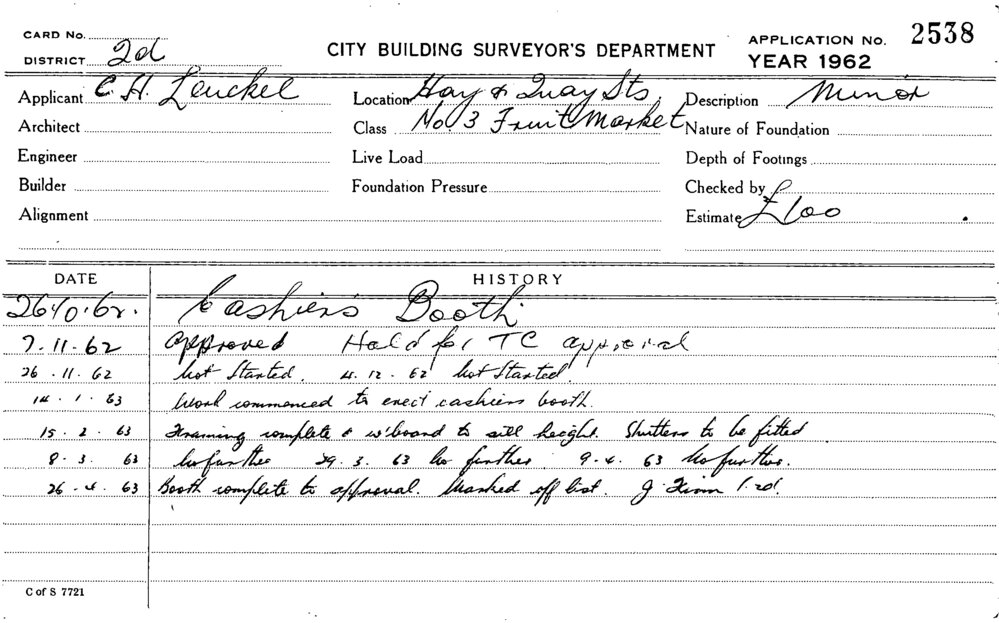 CARD No.
DISTRICT 2d
CITY BUILDING SURVEYOR'S DEPARTMENT
APPLICATION No. 2538
YEAR 1962
Applicant C. H. Leuckel
Location Hay & Quay Sts.
Description Minor
Architect
Class No. 3 Fruit Market
Nature of Foundation
Engineer
Live Load
Depth of Footings
Builder
Foundation Pressure
Checked by
Alignment
Estimate £100
DATE HISTORY
26.10.62. Cashier's Booth
7.11.62 Approved Hold for TC approval
26.11.62 Not Started. 4.12.62 Not Started
14.1.63 Work commenced to erect cashiers booth.
15.2.63 Framing complete & w'board to sill height. Shutters to be fitted
8.3.63 No further 29.3.63 No further. 9.4.63 No further.
26.4.63 Booth complete to approval. Marked off list. J.
C of S 7721